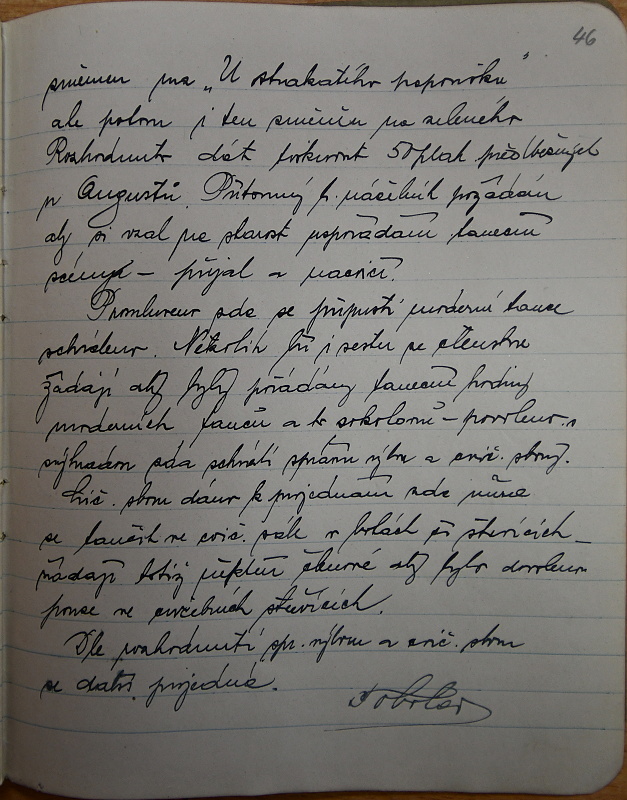 46
směnen na „U strakatého paponóka"
ale potom i ten směněn na zeleného
Rozhodnuto dát tisknout 50 plak. předběžných
p Augustů. Přítomný b. náčelník požádán
aby si vzal na starost uspořádání taneční
scény – přijal a nacvičí.
Promluveno zda se připustí moderní tance
schváleno. Několik br. i sester ze členstva
žádají aby byly pořádány taneční hodiny
moderních tanců a to sokolům – povoleno s
výhradou zda schválí správní výbor a cvič. sbor.
Cvič. sbor dáno k projednání zda může
se tančit ve cvič. sále v botách či střevících –
žádají totiž někteří členové aby bylo dovoleno
pouze ve cvičebních střevících.
Dle rozhodnutí spr. výboru a cvič. sboru
se další projedná.